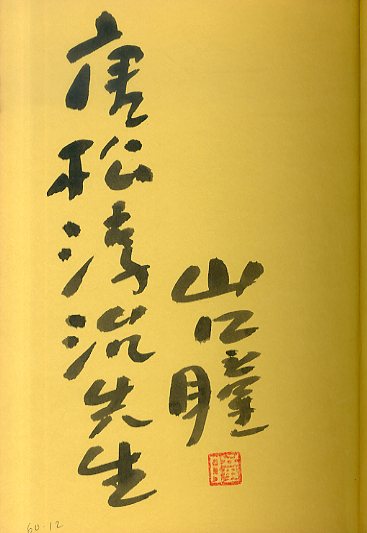 唐松淳治先生
山口瞳
60.12